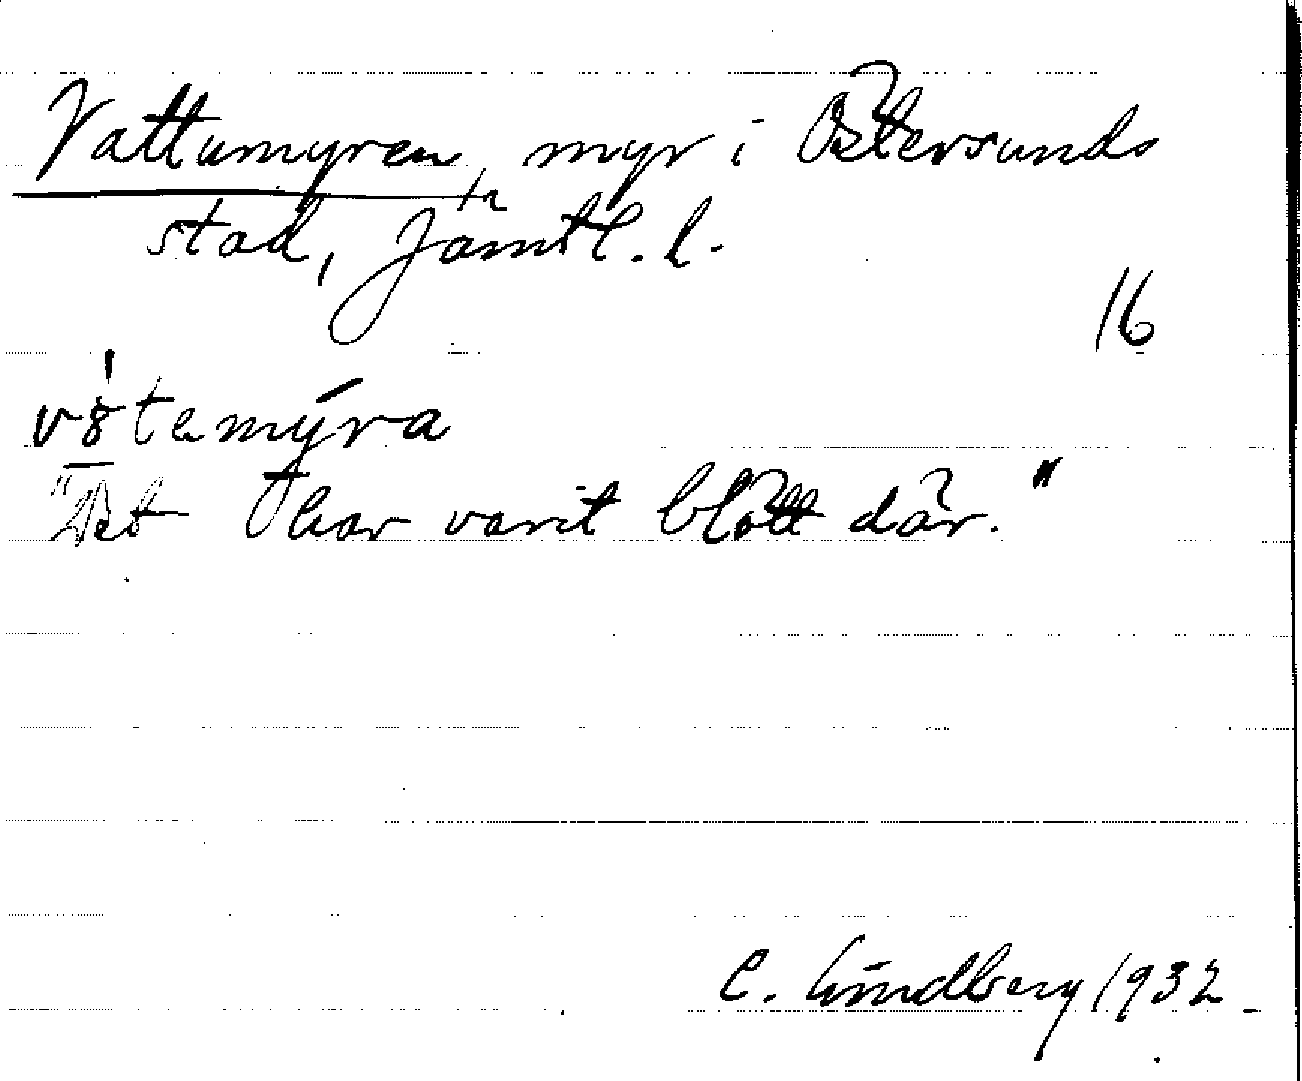 Vattumyren, myr i Östersunds
stad, Jämtl. l.
16
"Det har varit blött där."
C. Lindberg 1932